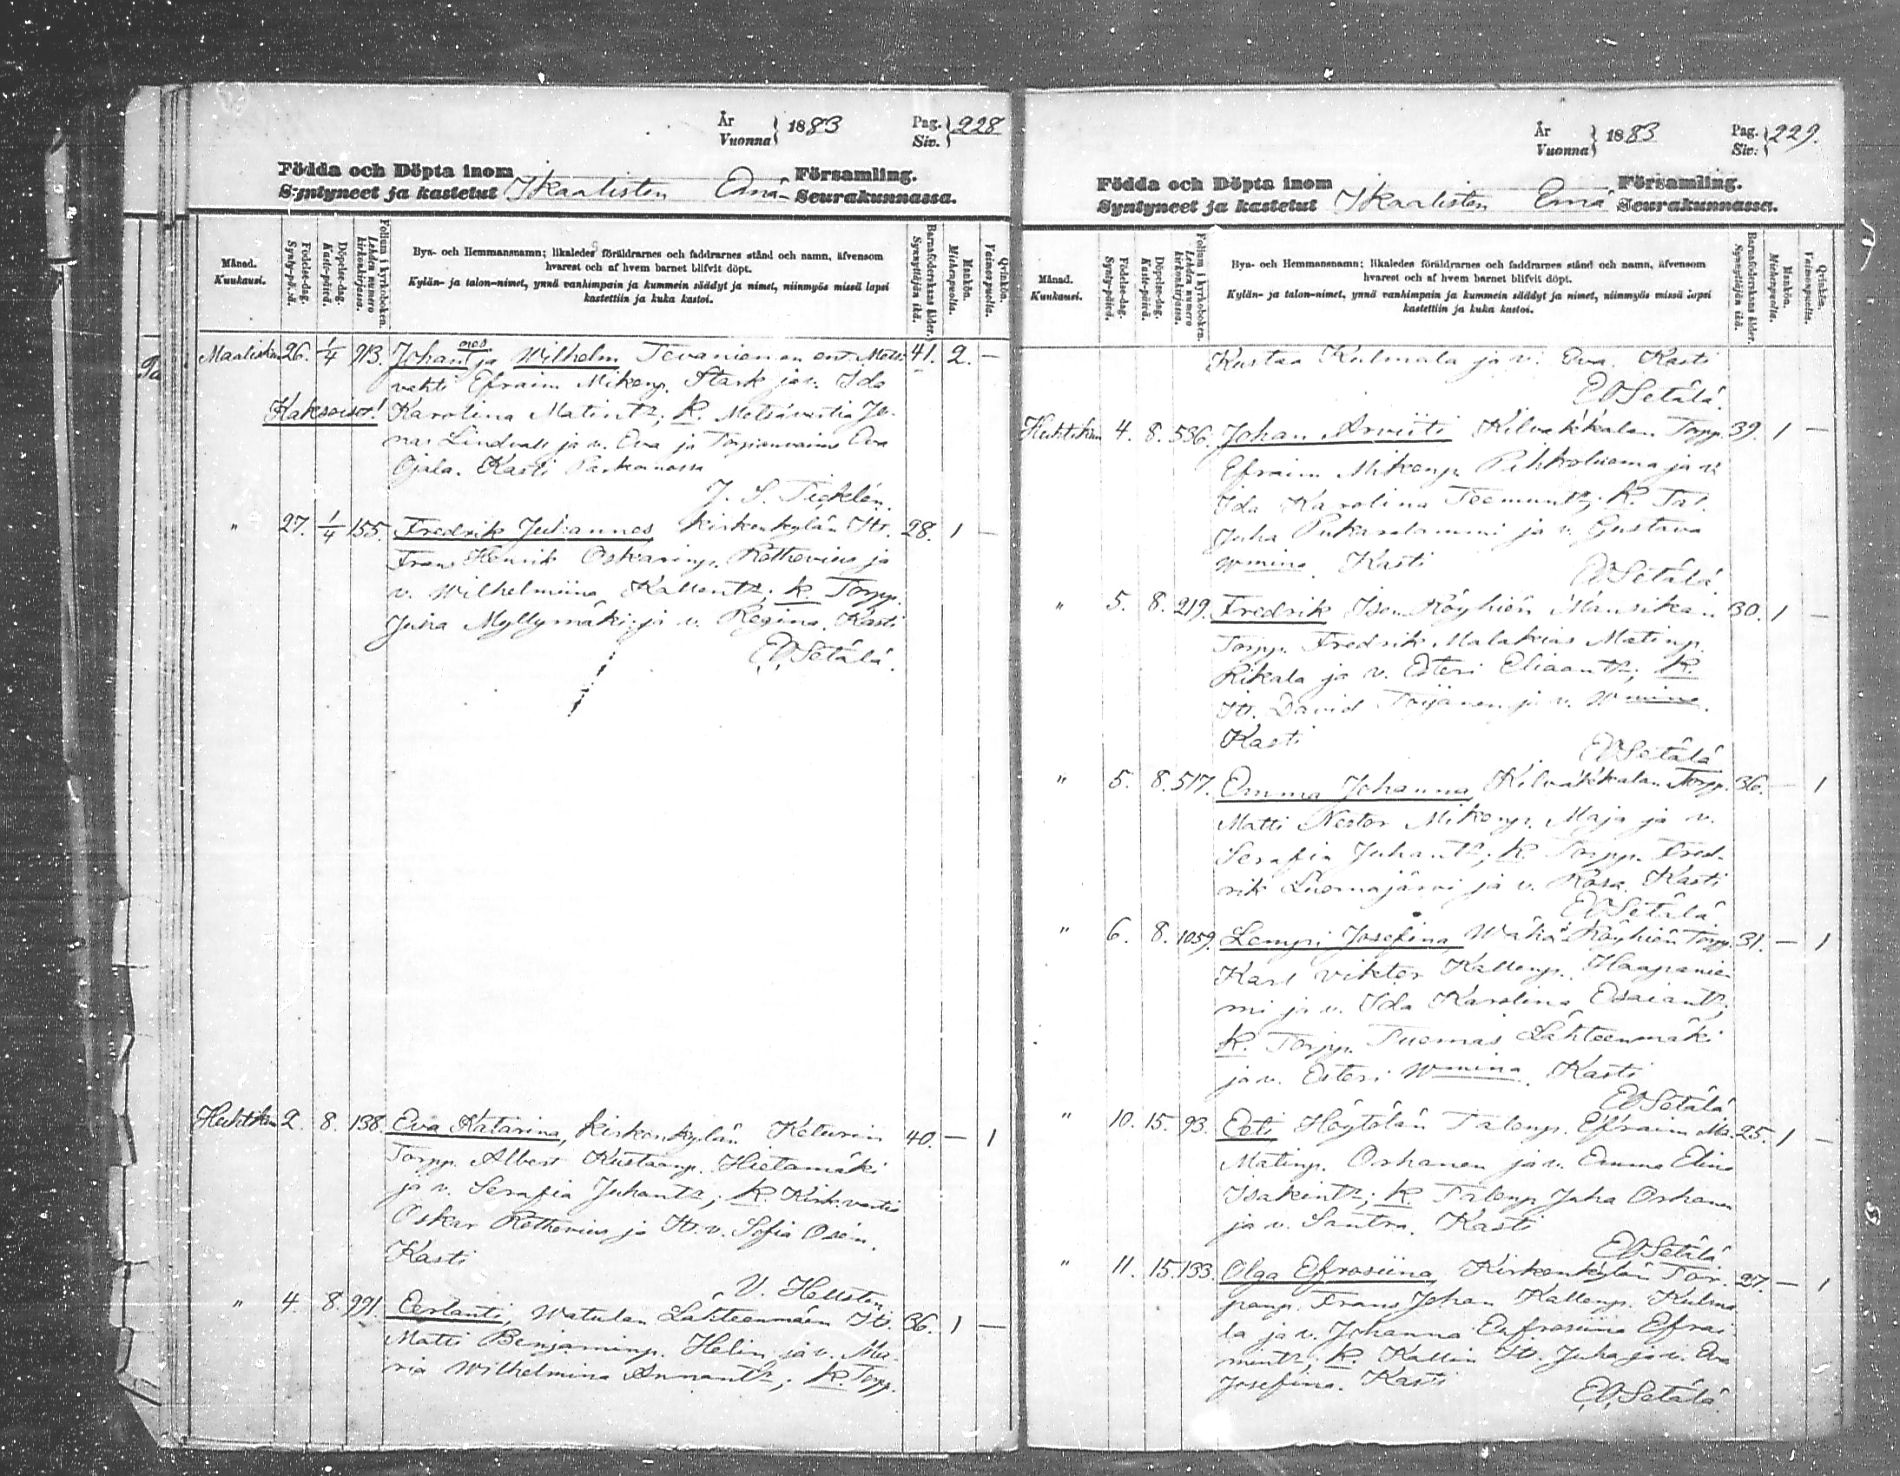 År
Vuonna } 1883
Pag.
Siv. } 228
Födda och Döpta inom
Syntyneet ja kastetut
Ikaalisten Emä
Församling.
Seurakunnassa.
Månad.
Kuukausi.
Födelse-dag.
Synty-päivä.
Döpelse-dag.
Kaste-päivä.
Folium i kyrkoboken.
Lehden numero kirkonkirjassa.
Bys- och Hemmansnamn; likaledes föräldrarnes och faddrarnes stånd och namn, äfvensom
hvarest och af hvem barnet blifvit döpt.
Kylän- ja talon-nimet, ynnä vanhimpain ja kummein säädyt ja nimet, niinmyös missä lapsi
kastettiin ja kuka kastoi.
Barnaföderskans ålder.
Synnyttäjän ikä.
Mankön.
Miehenpuolia.
Qvinkön.
Vaimonpuolia.
Maalisk. 26. 1/4 913. Johannes ja Wilhelm 41. 2. —
vahti Efraim Mikonp. Stark ja v. Ida
Kaksoiset! Karolina Matint:r; K. Metsävartia Jo-
nas Lindvall ja v. Eva ja Eva
Ojala. Kasti Parkanossa
" 27. 1/4 155. Fredrik Juhannes Kirkonkylän Itr. 28. 1 —
Frans Henrik Oskarinp. Rothovius ja
v. Wilhelmiina Kallent:r; K. Torpp.
Juha Myllymäki ja v. Regina. Kasti
E.V. Setälä.
Huhtikuu 2. 8. 138. Eva Katarina, Kirkonkylän Keturin 40. — 1
Torpp. Albert Kustaanp. Hietamäki
ja v. Serafia Juhant:r; K. Kirk.vartia
Oskar Rothovius ja Itr. v. Sofia Osén.
Kasti
V. Hellsten
" 4. 8. 991. Eerlanti, Watulan Lähteenmäen Itr. 36. 1 —
Matti Benjaminp. Helin ja v. Ma-
ria Wilhelmina Annant:r; K. Torpp.
År
Vuonna } 1883
Pag.
Siv. } 229.
Födda och Döpta inom
Syntyneet ja kastetut
Ikaalisten Emä
Församling.
Seurakunnassa.
Månad.
Kuukausi.
Födelse-dag.
Synty-päivä.
Döpelse-dag.
Kaste-päivä.
Folium i kyrkoboken.
Lehden numero kirkonkirjassa.
Bys- och Hemmansnamn; likaledes föräldrarnes och faddrarnes stånd och namn, äfvensom
hvarest och af hvem barnet blifvit döpt.
Kylän- ja talon-nimet, ynnä vanhimpain ja kummein säädyt ja nimet, niinmyös missä lapsi
kastettiin ja kuka kastoi.
Barnaföderskans ålder.
Synnyttäjän ikä.
Mankön.
Miehenpuolia.
Qvinkön.
Vaimonpuolia.
Kustaa Kulmala ja v. Eva. Kasti
E.V. Setälä.
Huhtikuu 4. 8. 536. Johan Arviiti Kilvakkalan Torpp. 39. 1 —
Efraim Mikonp. Pihkoluoma ja v.
Ida Karolina Teemunt:r; K. Tal.
Juha ja v. Gustava
Wmina. Kasti
E.V. Setälä
" 5. 8. 219. Fredrik Ison Röyhiön Mansikan 30. 1 —
Torpp. Fredrik Malakias Matinp.
Rikala ja v. Esteri Eliaant:r; K.
Itr. David Toijanen ja v. Wmina.
Kasti
E.V. Setälä
" 5. 8. 517. Emma Johanna, Kilvakkalan Torpp. 36. — 1
Matti Nestor Mikonp. Maja ja v.
Serafia Juhant:r; K. Torpp. Fred-
rik Luomajärvi ja v. Rosa. Kasti
E.V. Setälä.
" 6. 8. 1059. Lempi Josefina, Wähä Röyhiön Torpp. 31. — 1
Karl Viktor Kallenp. Haapanie-
mi ja v. Ida Karolina Esaiant:r;
K. Torpp. Tuomas Lähteenmäki
ja v. Esteri Wmina. Kasti
E.V. Setälä
" 10. 15. 93. Eeti Höytölän Talonp. Efraim Ma. 25. 1 —
Matinp. Orhanen ja v. Emma Elina
Isakint:r; K. Talonp. Juha Orhanen
ja v. Santra. Kasti
E.V. Setälä
" 11. 15. 133. Olga Efrosiina, Kirkonkylän Tor- 27. — 1
panp. Frans Johan Kallenp. Kulma-
la ja v. Johanna Eufrosiina Efrai-
mint:r; K. Kallin Itr. Juha ja v. Eva
Josefina. Kasti
E.V. Setälä.